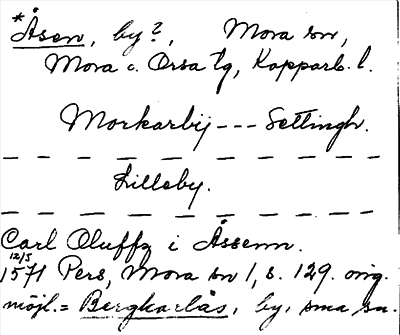 *Åsen, by?, Mora sn,
Mora o. Orsa tg, Kopparb. l.
Morkarbij --- Settingh.
— — — — — — — — — —
Lilleby.
— — — — — — — — — —
Carl Oluffz i Åssenn.
12/5
1571 Pers, Mora sn 1, s. 129. orig.
möjl. = Bergkarlås, by, sma sn.